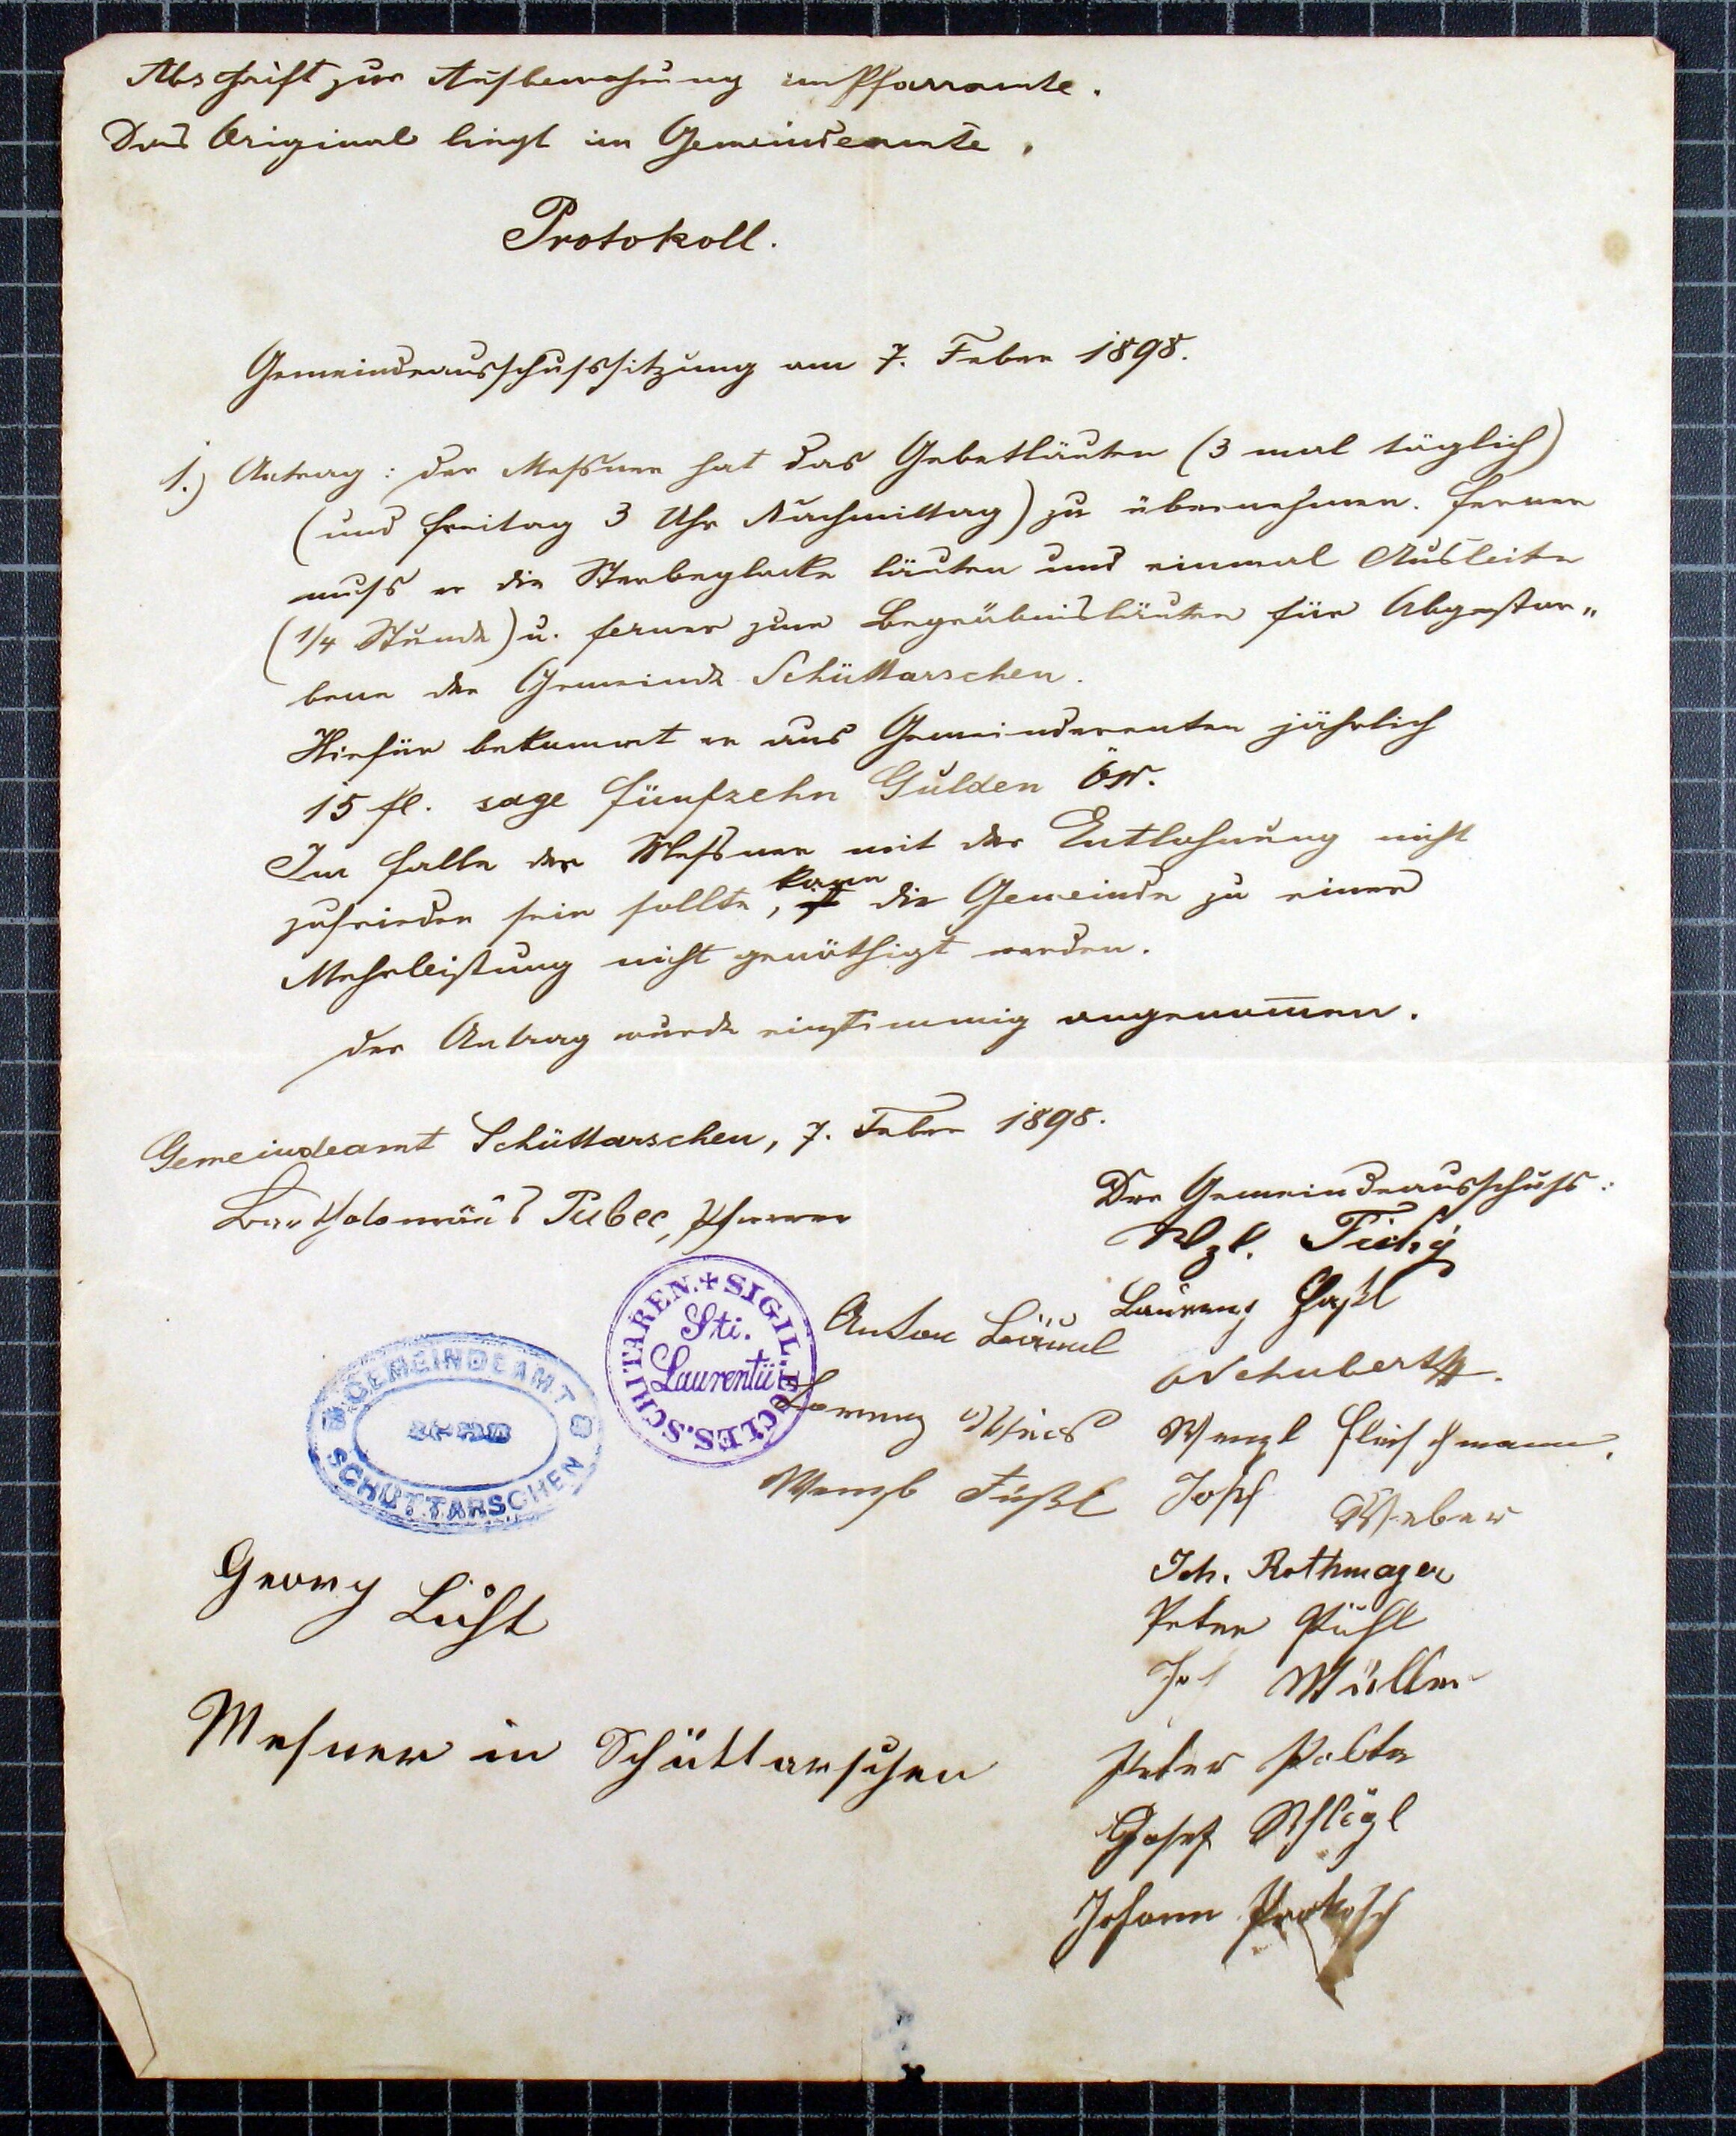 Abschrift zur Aufbewahrung im Pfarramte.
Das Original liegt im Gemeindeamte.
Protokoll.
Gemeindeausschufssitzung am 7. Feber 1898.
1.) Antrag: der Meßner hat das Gebetläuten (3 mal täglich)
(und Freitag 3 Uhr Nachmittag) zu übernehmen. Ferner
mufs er die Sterbeglocke läuten und einmal Ausläuten
(1/4 Stunde) u. ferner zum Begräbnisläuten für Abgestor„
bene der Gemeinde Schüttarschen.
Hiefür bekommt er aus Gemeinderenten jährlich
15 fl. sage fünfzehn Gulden öW.
Im Falle der Meßner mit der Entlohnung nicht
zufrieden sein sollte, kann die Gemeinde zu einer
Mehrleistung nicht genöthigt werden.
Der Antrag wurde einstimmig angenommen.
Gemeindeamt Schüttarschen, 7. Feber 1898.
Bartholomäus Pubec, Pfarrer
Der Gemeindeausschufs:
Wzl. Tichý
Laurenz
Anton
Schubert
Lorenz
Wenzl Fleischmann.
Wenzl Füßl
Josef Weber
Joh. Rothmayer
Peter Pühl
Jos Müller
Peter Polta
Josef Schlögl
Johann Prokosch
Georg Licht
Mesner in Schüttarschen
SIGIL. ECCLES. SCHITAREN.
Sti.
Laurentii
GEMEINDEAMT
SCHÜTTARSCHEN